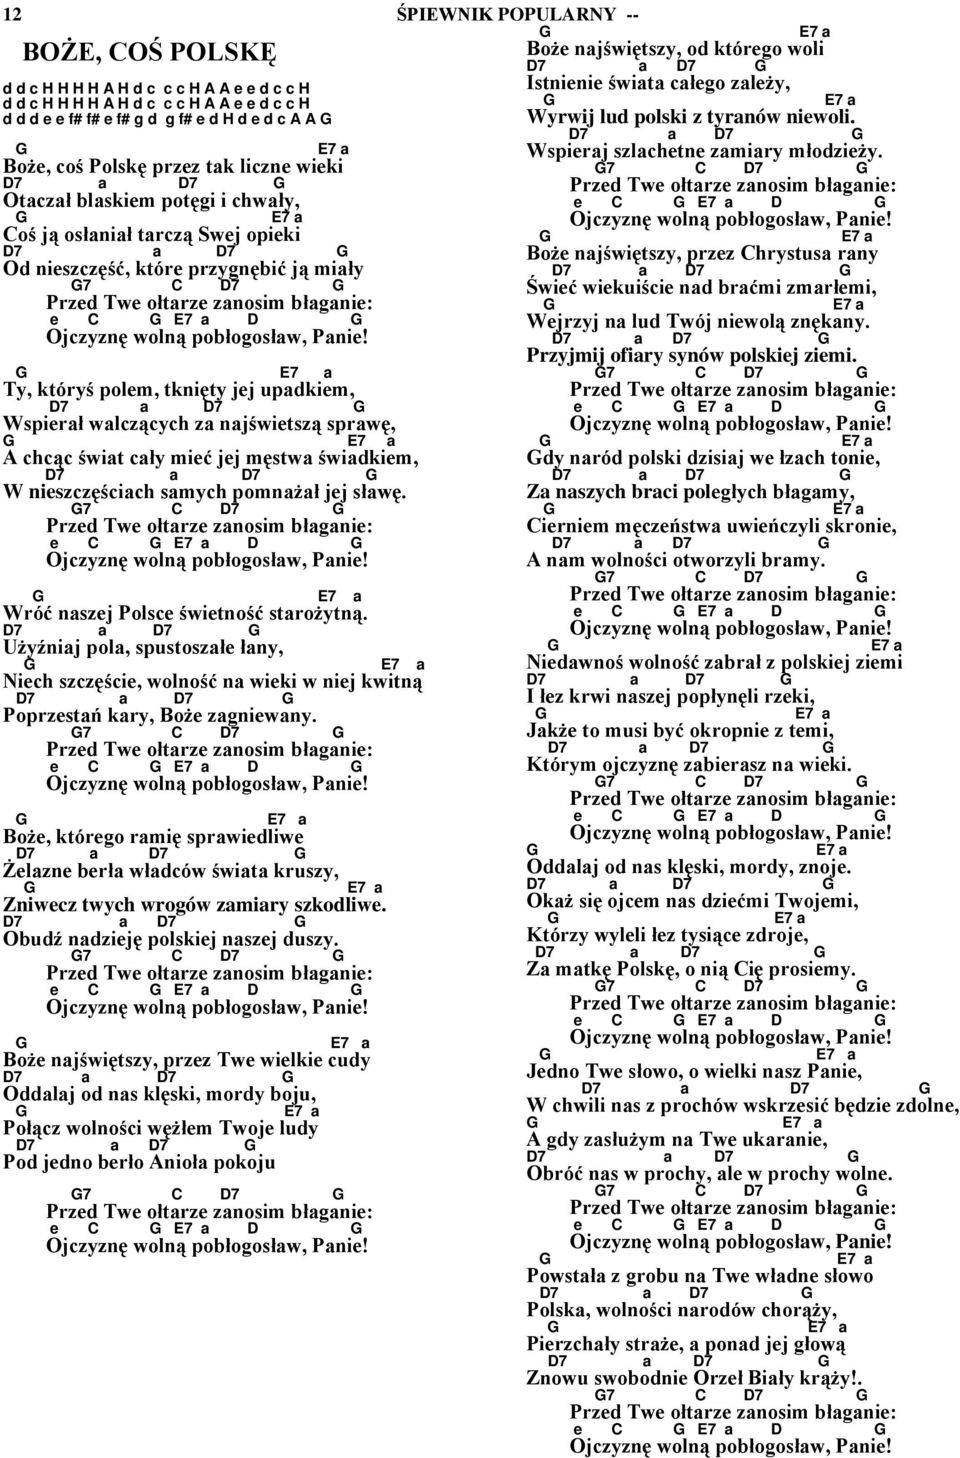 12 ŚPIEWNIK POPULARNY --
BOŻE, COŚ POLSKĘ
d d c H H H H A H d c c c H A A e e d c c H
d d c H H H H A H d c c c H A A e e d c c H
d d d e e f# f# e f# g d g f# e d H d e d c A A G
G E7 a
Boże, coś Polskę przez tak liczne wieki
D7 a D7 G
Otaczał blaskiem potęgi i chwały,
G E7 a
Coś ją osłaniał tarczą Swej opieki
D7 a D7 G
Od nieszczęść, które przygnębić ją miały
G7 C D7 G
Przed Twe ołtarze zanosim błaganie:
e C G E7 a D G
Ojczyznę wolną pobłogosław, Panie!
G E7 a
Ty, któryś polem, tknięty jej upadkiem,
D7 a D7 G
Wspierał walczących za najświetszą sprawę,
G E7 a
A chcąc świat cały mieć jej męstwa świadkiem,
D7 a D7 G
W nieszczęściach samych pomnażał jej sławę.
G7 C D7 G
Przed Twe ołtarze zanosim błaganie:
e C G E7 a D G
Ojczyznę wolną pobłogosław, Panie!
G E7 a
Wróć naszej Polsce świetność starożytną.
D7 a D7 G
Użyźniaj pola, spustoszałe łany,
G E7 a
Niech szczęście, wolność na wieki w niej kwitną
D7 a D7 G
Poprzestań kary, Boże zagniewany.
G7 C D7 G
Przed Twe ołtarze zanosim błaganie:
e C G E7 a D G
Ojczyznę wolną pobłogosław, Panie!
G E7 a
Boże, którego ramię sprawiedliwe
D7 a D7 G
Żelazne berła władców świata kruszy,
G E7 a
Zniwecz twych wrogów zamiary szkodliwe.
D7 a D7 G
Obudź nadzieję polskiej naszej duszy.
G7 C D7 G
Przed Twe ołtarze zanosim błaganie:
e C G E7 a D G
Ojczyznę wolną pobłogosław, Panie!
G E7 a
Boże najświętszy, przez Twe wielkie cudy
D7 a D7 G
Oddalaj od nas klęski, mordy boju,
G E7 a
Połącz wolności węźłem Twoje ludy
D7 a D7 G
Pod jedno berło Anioła pokoju
G7 C D7 G
Przed Twe ołtarze zanosim błaganie:
e C G E7 a D G
Ojczyznę wolną pobłogosław, Panie!
G E7 a
Boże najświętszy, od którego woli
D7 a D7 G
Istnienie świata całego zależy,
G E7 a
Wyrwij lud polski z tyranów niewoli.
D7 a D7 G
Wspieraj szlachetne zamiary młodzieży.
G7 C D7 G
Przed Twe ołtarze zanosim błaganie:
e C G E7 a D G
Ojczyznę wolną pobłogosław, Panie!
G E7 a
Boże najświętszy, przez Chrystusa rany
D7 a D7 G
Świeć wiekuiście nad braćmi zmarłemi,
G E7 a
Wejrzyj na lud Twój niewolą znękany.
D7 a D7 G
Przyjmij ofiary synów polskiej ziemi.
G7 C D7 G
Przed Twe ołtarze zanosim błaganie:
e C G E7 a D G
Ojczyznę wolną pobłogosław, Panie!
G E7 a
Gdy naród polski dzisiaj we łzach tonie,
D7 a D7 G
Za naszych braci poległych błagamy,
G E7 a
Cierniem męczeństwa uwieńczyli skronie,
D7 a D7 G
A nam wolności otworzyli bramy.
G7 C D7 G
Przed Twe ołtarze zanosim błaganie:
e C G E7 a D G
Ojczyznę wolną pobłogosław, Panie!
G E7 a
Niedawnoś wolność zabrał z polskiej ziemi
D7 a D7 G
I łez krwi naszej popłynęli rzeki,
G E7 a
Jakże to musi być okropnie z temi,
D7 a D7 G
Którym ojczyznę zabierasz na wieki.
G7 C D7 G
Przed Twe ołtarze zanosim błaganie:
e C G E7 a D G
Ojczyznę wolną pobłogosław, Panie!
G E7 a
Oddalaj od nas klęski, mordy, znoje.
D7 a D7 G
Okaż się ojcem nas dziećmi Twojemi,
G E7 a
Którzy wyleli łez tysiące zdroje,
D7 a D7 G
Za matkę Polskę, o nią Cię prosiemy.
G7 C D7 G
Przed Twe ołtarze zanosim błaganie:
e C G E7 a D G
Ojczyznę wolną pobłogosław, Panie!
G E7 a
Jedno Twe słowo, o wielki nasz Panie,
D7 a D7 G
W chwili nas z prochów wskrzesić będzie zdolne,
G E7 a
A gdy zasłużym na Twe ukaranie,
D7 a D7 G
Obróć nas w prochy, ale w prochy wolne.
G7 C D7 G
Przed Twe ołtarze zanosim błaganie:
e C G E7 a D G
Ojczyznę wolną pobłogosław, Panie!
G E7 a
Powstała z grobu na Twe władne słowo
D7 a D7 G
Polska, wolności narodów chorąży,
G E7 a
Pierzchały straże, a ponad jej głową
D7 a D7 G
Znowu swobodnie Orzeł Biały krąży!.
G7 C D7 G
Przed Twe ołtarze zanosim błaganie:
e C G E7 a D G
Ojczyznę wolną pobłogosław, Panie!